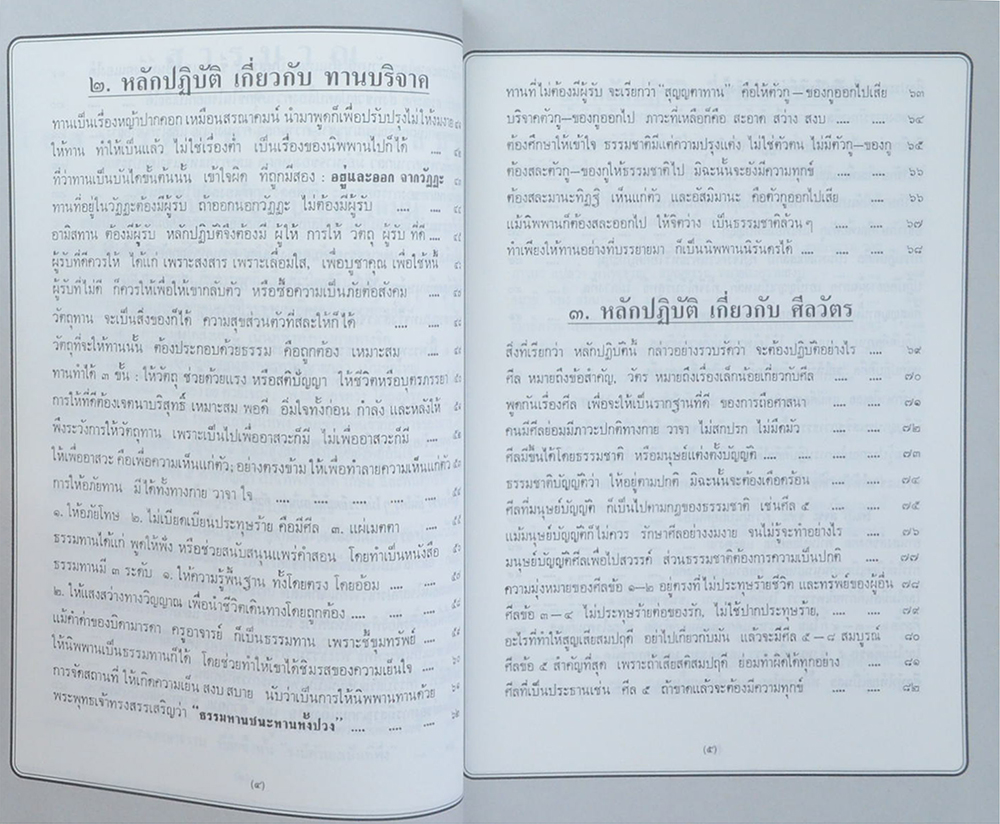 ๒. หลักปฏิบัติ เกี่ยวกับ ทานบริจาค
ทานเป็นเรื่องหญ้าปากคอก เหมือนสรณาคมน์ นำมาพูดก็เพื่อปรับปรุงไม่ให้งมงาย
ให้ทาน ทำให้เป็นแล้ว ไม่ใช่เรื่องต่ำ เป็นเรื่องของนิพพานไปก็ได้ ....
ที่ว่าทานเป็นบันไดขั้นต้นนั้น เข้าใจผิด ที่ถูกมีสอง : อยู่และออก จากวัฏฏะ
ทานที่อยู่ในวัฏฏะต้องมีผู้รับ ถ้าออกนอกวัฏฏะ ไม่ต้องมีผู้รับ .... ....
อามิสทาน ต้องมีผู้รับ หลักปฏิบัติจึงต้องมี ผู้ให้ การให้ วัตถุ ผู้รับ ที่ดี ....
ผู้รับที่ดีควรให้ ได้แก่ เพราะสงสาร เพราะเลื่อมใส, เพื่อบูชาคุณ เพื่อใช้หนี้
ผู้รับที่ไม่ดี ก็ควรให้เพื่อให้เขากลับตัว หรือซื้อความเป็นภัยต่อสังคม ....
วัตถุทาน จะเป็นสิ่งของก็ได้ ความสุขส่วนตัวที่สละให้ก็ได้ .... ....
วัตถุที่จะให้ทานนั้น ต้องประกอบด้วยธรรม คือถูกต้อง เหมาะสม ....
ทานทำได้ ๓ ขั้น : ให้วัตถุ ช่วยด้วยแรง หรือสติปัญญา ให้ชีวิตหรือบุตรภรรยา
การให้ที่ดีต้องเจตนาบริสุทธิ์ เหมาะสม พอดี อิ่มใจทั้งก่อน กำลัง และหลังให้
พึงระวังการให้วัตถุทาน เพราะเป็นไปเพื่ออาสวะก็มี ไม่เพื่ออาสวะก็มี ....
ให้เพื่ออาสวะ คือเพื่อความเห็นแก่ตัว; อย่างตรงข้าม ให้เพื่อทำลายความเห็นแก่ตัว
การให้อภัยทาน มีได้ทั้งทางกาย วาจา ใจ .... .... .... ....
๑. ให้อภัยโทษ ๒. ไม่เบียดเบียนประทุษร้าย คือมีศีล ๓. แผ่เมตตา ....
ธรรมทานได้แก่ พูดให้ฟัง หรือช่วยสนับสนุนแพร่คำสอน โดยทำเป็นหนังสือ
ธรรมทานมี ๓ ระดับ ๑. ให้ความรู้พื้นฐาน ทั้งโดยตรง โดยอ้อม .... ....
๒. ให้แสงสว่างทางวิญญาณ เพื่อนำชีวิตเดินทางโดยถูกต้อง .... ....
แม้คำด่าของบิดามารดา ครูอาจารย์ ก็เป็นธรรมทาน เพราะชี้ขุมทรัพย์ ....
ให้นิพพานเป็นธรรมทานก็ได้ โดยช่วยทำให้เขาได้ชิมรสของความเย็นใจ ....
การจัดสถานที่ ให้เกิดความเย็น สงบ สบาย นับว่าเป็นการให้นิพพานทานด้วย
พระพุทธเจ้าทรงสรรเสริญว่า "ธรรมทานชนะทานทั้งปวง" .... ....
(๔)
ทานที่ไม่ต้องมีผู้รับ จะเรียกว่า "สุญญตาทาน" คือให้ตัวกู—ของกูออกไปเสีย ๖๓
บริจาคตัวกู—ของกูออกไป ภาวะที่เหลือก็คือ สะอาด สว่าง สงบ .... .... ๖๔
ต้องศึกษาให้เข้าใจ ธรรมชาติมีแต่ความปรุงแต่ง ไม่ใช่ตัวตน ไม่มีตัวกู—ของกู ๖๕
ต้องสละตัวกู—ของกูให้ธรรมชาติไป มิฉะนั้นจะยังมีความทุกข์ .... .... ๖๖
ต้องสละมานะทิฏฐิ เห็นแก่ตัว และอัสมิมานะ คือตัวกูออกไปเสีย .... ๖๗
แม้นิพพานก็ต้องสละออกไป ให้จิตว่าง เป็นธรรมชาติล้วนๆ .... .... ๖๖
ทำเพียงให้ทานอย่างที่บรรยายมา ก็เป็นนิพพานนิรันดรได้ .... .... .... ๖๘
๓. หลักปฏิบัติ เกี่ยวกับ ศีลวัตร
สิ่งที่เรียกว่า หลักปฏิบัตินี้ กล่าวอย่างรวบรัดว่า จะต้องปฏิบัติอย่างไร .... ๖๙
ศีล หมายถึงข้อสำคัญ, วัตร หมายถึงเรื่องเล็กน้อยเกี่ยวกับศีล .... .... ๗๐
พูดกันเรื่องศีล เพื่อจะให้เป็นรากฐานที่ดี ของการถือศาสนา .... .... ๗๑
คนมีศีลย่อมมีภาวะปกติทางกาย วาจา ไม่สกปรก ไม่มืดมัว .... .... ๗๒
ศีลมีขึ้นได้โดยธรรมชาติ หรือมนุษย์แต่งตั้งบัญญัติ .... .... .... ๗๓
ธรรมชาติบัญญัติว่า ให้อยู่ตามปกติ มิฉะนั้นจะต้องเดือดร้อน .... .... ๗๔
ศีลที่มนุษย์บัญญัติ ก็เป็นไปตามกฎของธรรมชาติ เช่นศีล ๕ .... .... ๗๕
แม้มนุษย์บัญญัติก็ไม่ควร รักษาศีลอย่างงมงาย จนไม่รู้จะทำอย่างไร .... ๗๖
มนุษย์บัญญัติศีลเพื่อไปสวรรค์ ส่วนธรรมชาติต้องการความเป็นปกติ .... ๗๗
ความมุ่งหมายของศีลข้อ ๑—๒ อยู่ตรงที่ ไม่ประทุษร้ายชีวิต และทรัพย์ของผู้อื่น ๗๘
ศีลข้อ ๓—๔ ไม่ประทุษร้ายต่อของรัก, ไม่ใช้ปากประทุษร้าย, .... .... ๗๙
อะไรที่ทำให้สูญเสียสมปฤดี อย่าไปเกี่ยวกับมัน แล้วจะมีศีล ๕—๘ สมบูรณ์ ๘๐
ศีลข้อ ๕ สำคัญที่สุด เพราะถ้าเสียสติสมปฤดี ย่อมทำผิดได้ทุกอย่าง .... ๘๑
ศีลที่เป็นประธานเช่น ศีล ๕ ถ้าขาดแล้วจะต้องมีความทุกข์ .... .... ๘๒
(๕)